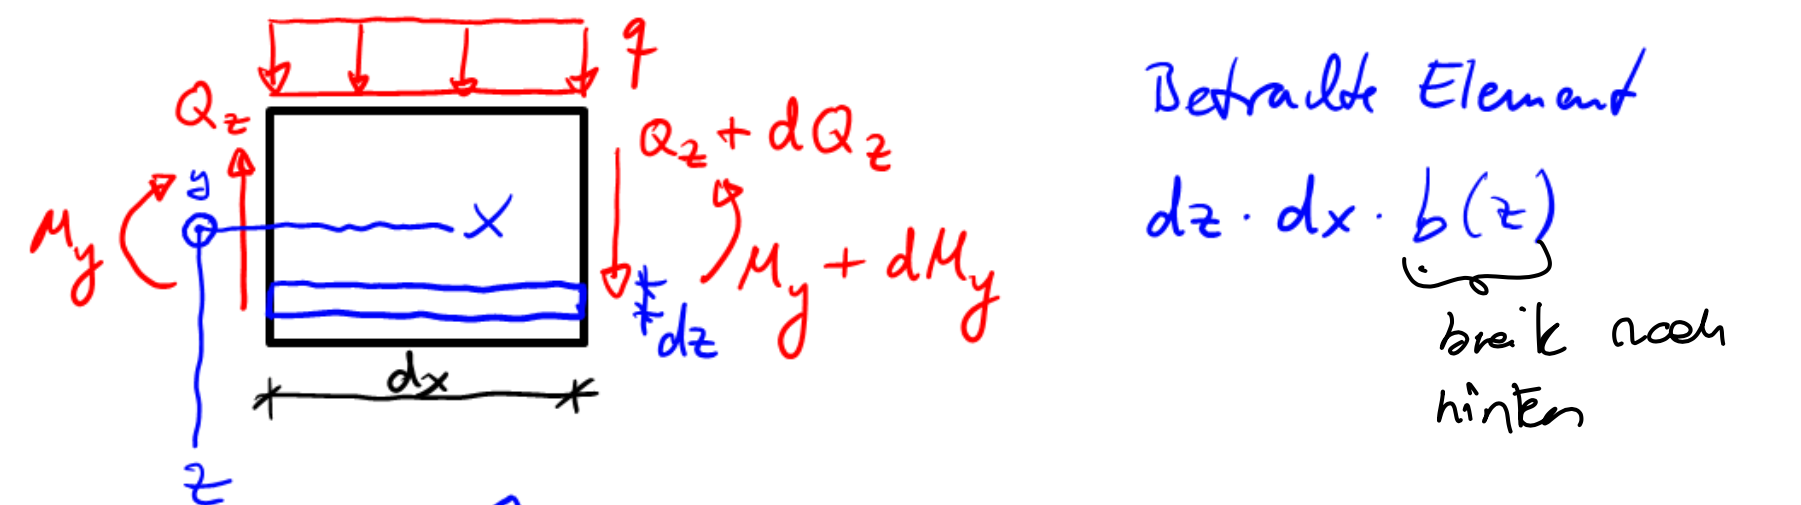 q
Q_z
Q_z + dQ_z
y
x
M_y
M_y + dM_y
dz
dx
z
Betrachte Element
dz · dx · b(z)
breite nach
hinten